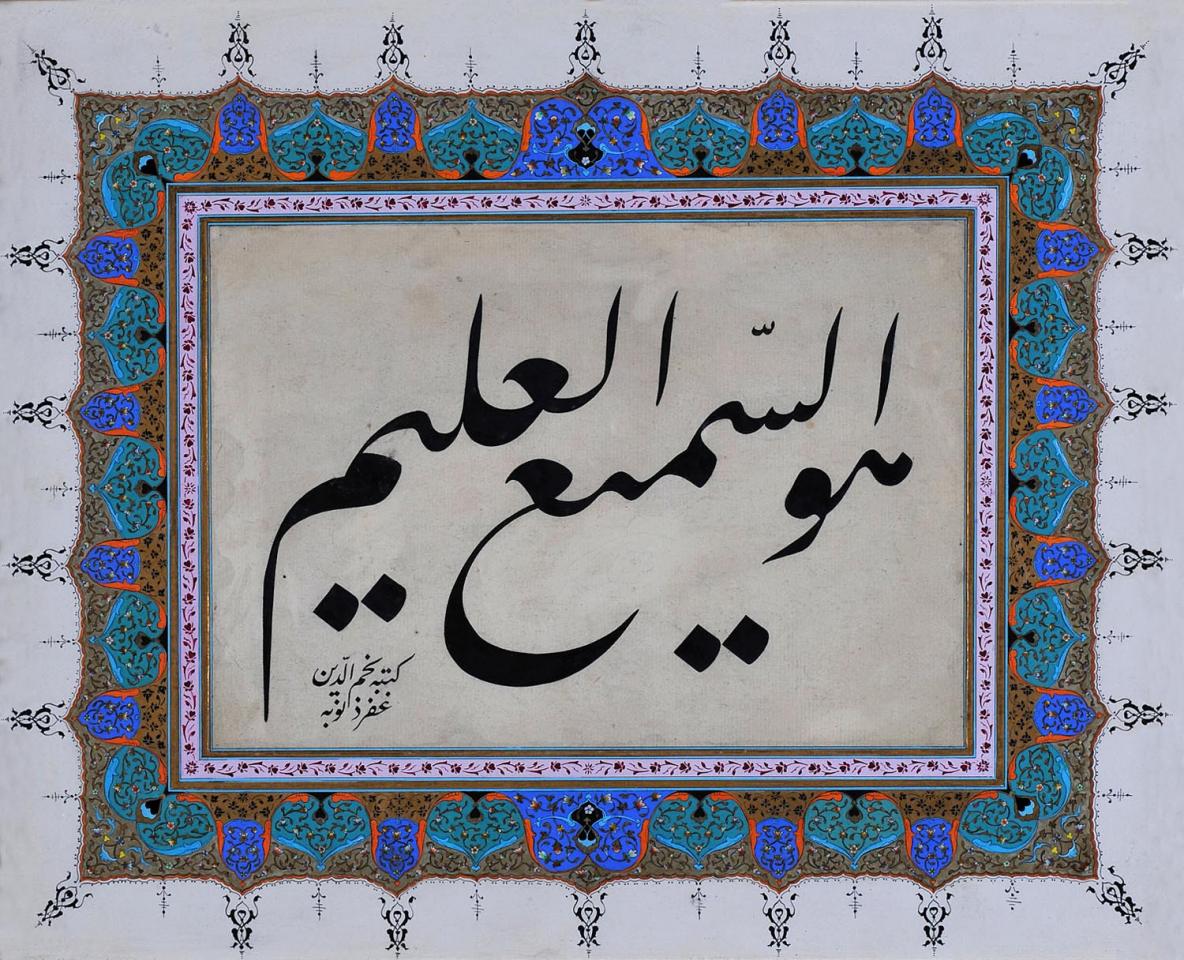 هو السّميع العليم
كتبه نجم الدّين
غفر ذنوبه